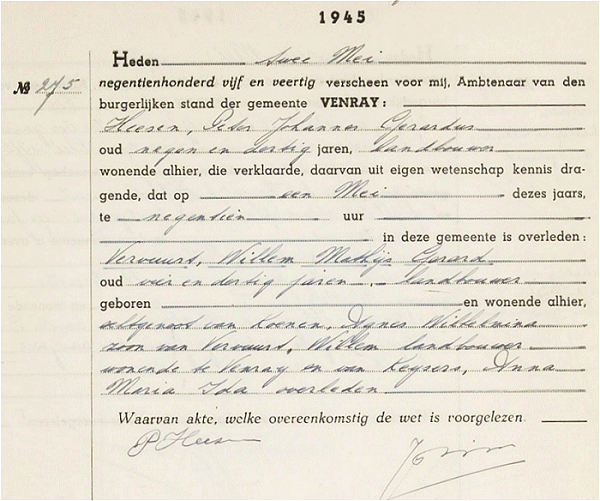 1945
Heden twee Mei
№ 275
negentienhonderd vijf en veertig verscheen voor mij, Ambtenaar van den
burgerlijken stand der gemeente VENRAY:
Heesen, Peter Johannes Gerardus
oud negen en dertig jaren, landbouwer
wonende alhier, die verklaarde, daarvan uit eigen wetenschap kennis dra-
gende, dat op een Mei dezes jaars,
te negentien uur
in deze gemeente is overleden:
Vervuurt, Willem Mathijs Gerard
oud vier en dertig jaren, landbouwer
geboren en wonende alhier,
echtgenoot van Koenen, Agnes Wilhelmina
zoon van Vervuurt, Willem landbouwer
wonende te Venray en van Keysers, Anna
Maria Ida overleden
Waarvan akte, welke overeenkomstig de wet is voorgelezen.
P Heesen